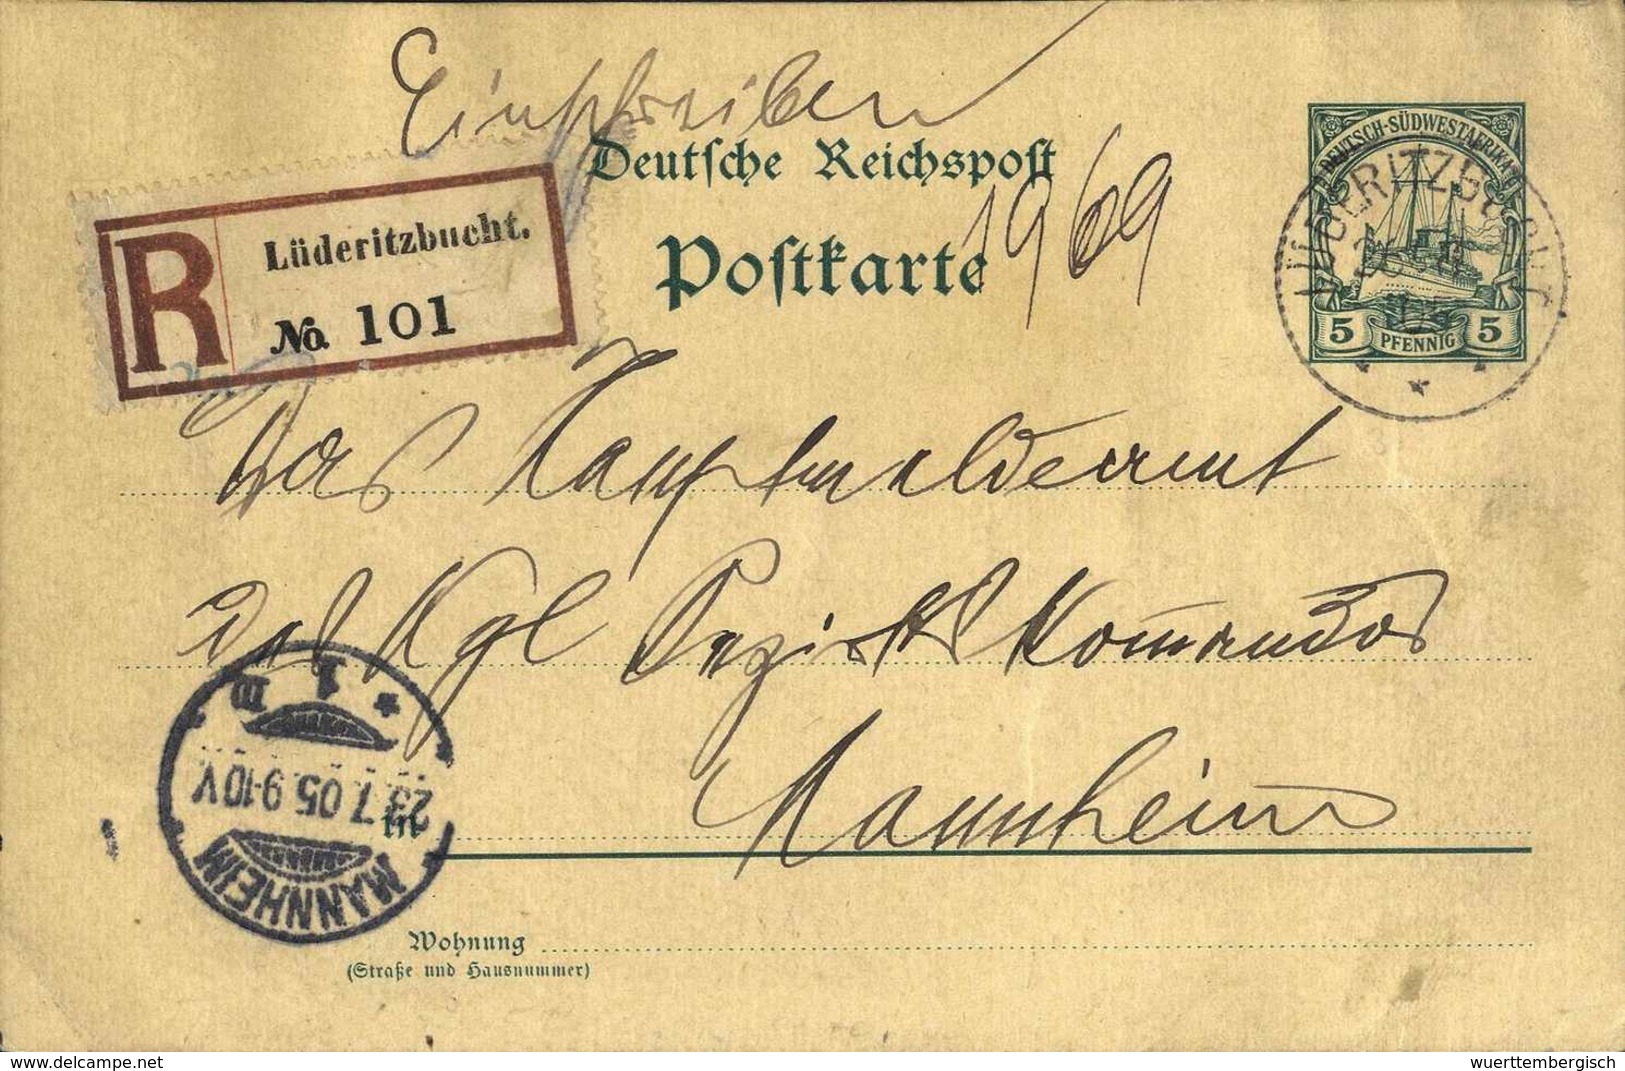 Einschreiben
Deutsche Reichspost
Postkarte
1969
R
Lüderitzbucht.
No. 101
DEUTSCH-SÜDWESTAFRIKA
5 PFENNIG 5
LÜDERITZBUCHT
Das Hauptmeldeamt
des Kgl Bezirks Komandos
in Mannheim
MANNHEIM
23.7.05.9-10V
* 1 III *
Wohnung
(Straße und Hausnummer)
wuerttembergisch